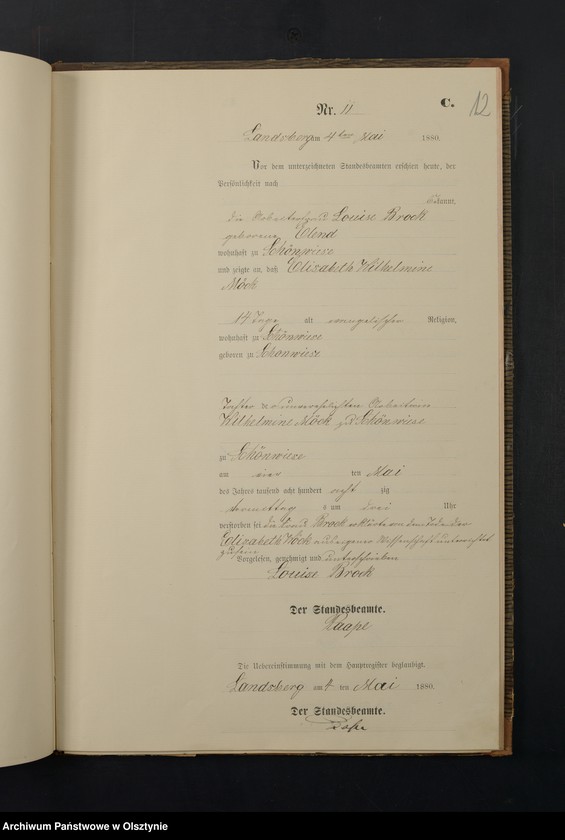 C.
12
Nr. 11
Landsberg am 4ten Mai 1880.
Vor dem unterzeichneten Standesbeamten erschien heute, der
Persönlichkeit nach
kannt,
die Arbeiterfrau Louise Brock
geborene Elend
wohnhaft zu Schönwiese
und zeigte an, daß Elisabeth Wilhelmine
Möck
14 Tage alt evangelischer Religion,
wohnhaft zu Schönwiese
geboren zu Schönwiese
Tochter der unverehelichten Arbeiterin
Wilhelmine Möck zu Schönwiese
zu Schönwiese
am vier ten Mai
des Jahres tausend acht hundert acht zig
Vormittag s um drei Uhr
verstorben sei die Frau Brock erklärte von dem Tode der
Elisabeth Möck aus eigener Wissenschaft unterrichtet
zu sein
Vorgelesen, genehmigt und unterschrieben
Louise Brock
Der Standesbeamte.
Die Uebereinstimmung mit dem Hauptregister beglaubigt.
Landsberg am 4 ten Mai 1880.
Der Standesbeamte.
Archiwum Państwowe w Olsztynie